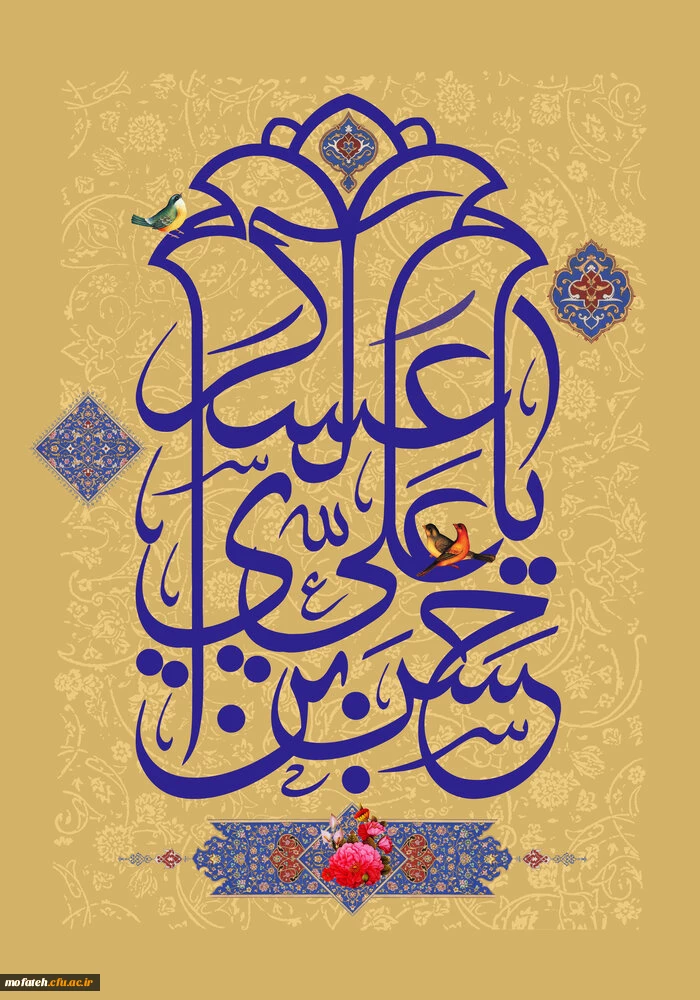 يا حسن بن علي العسكري
mofateh.cfu.ac.ir